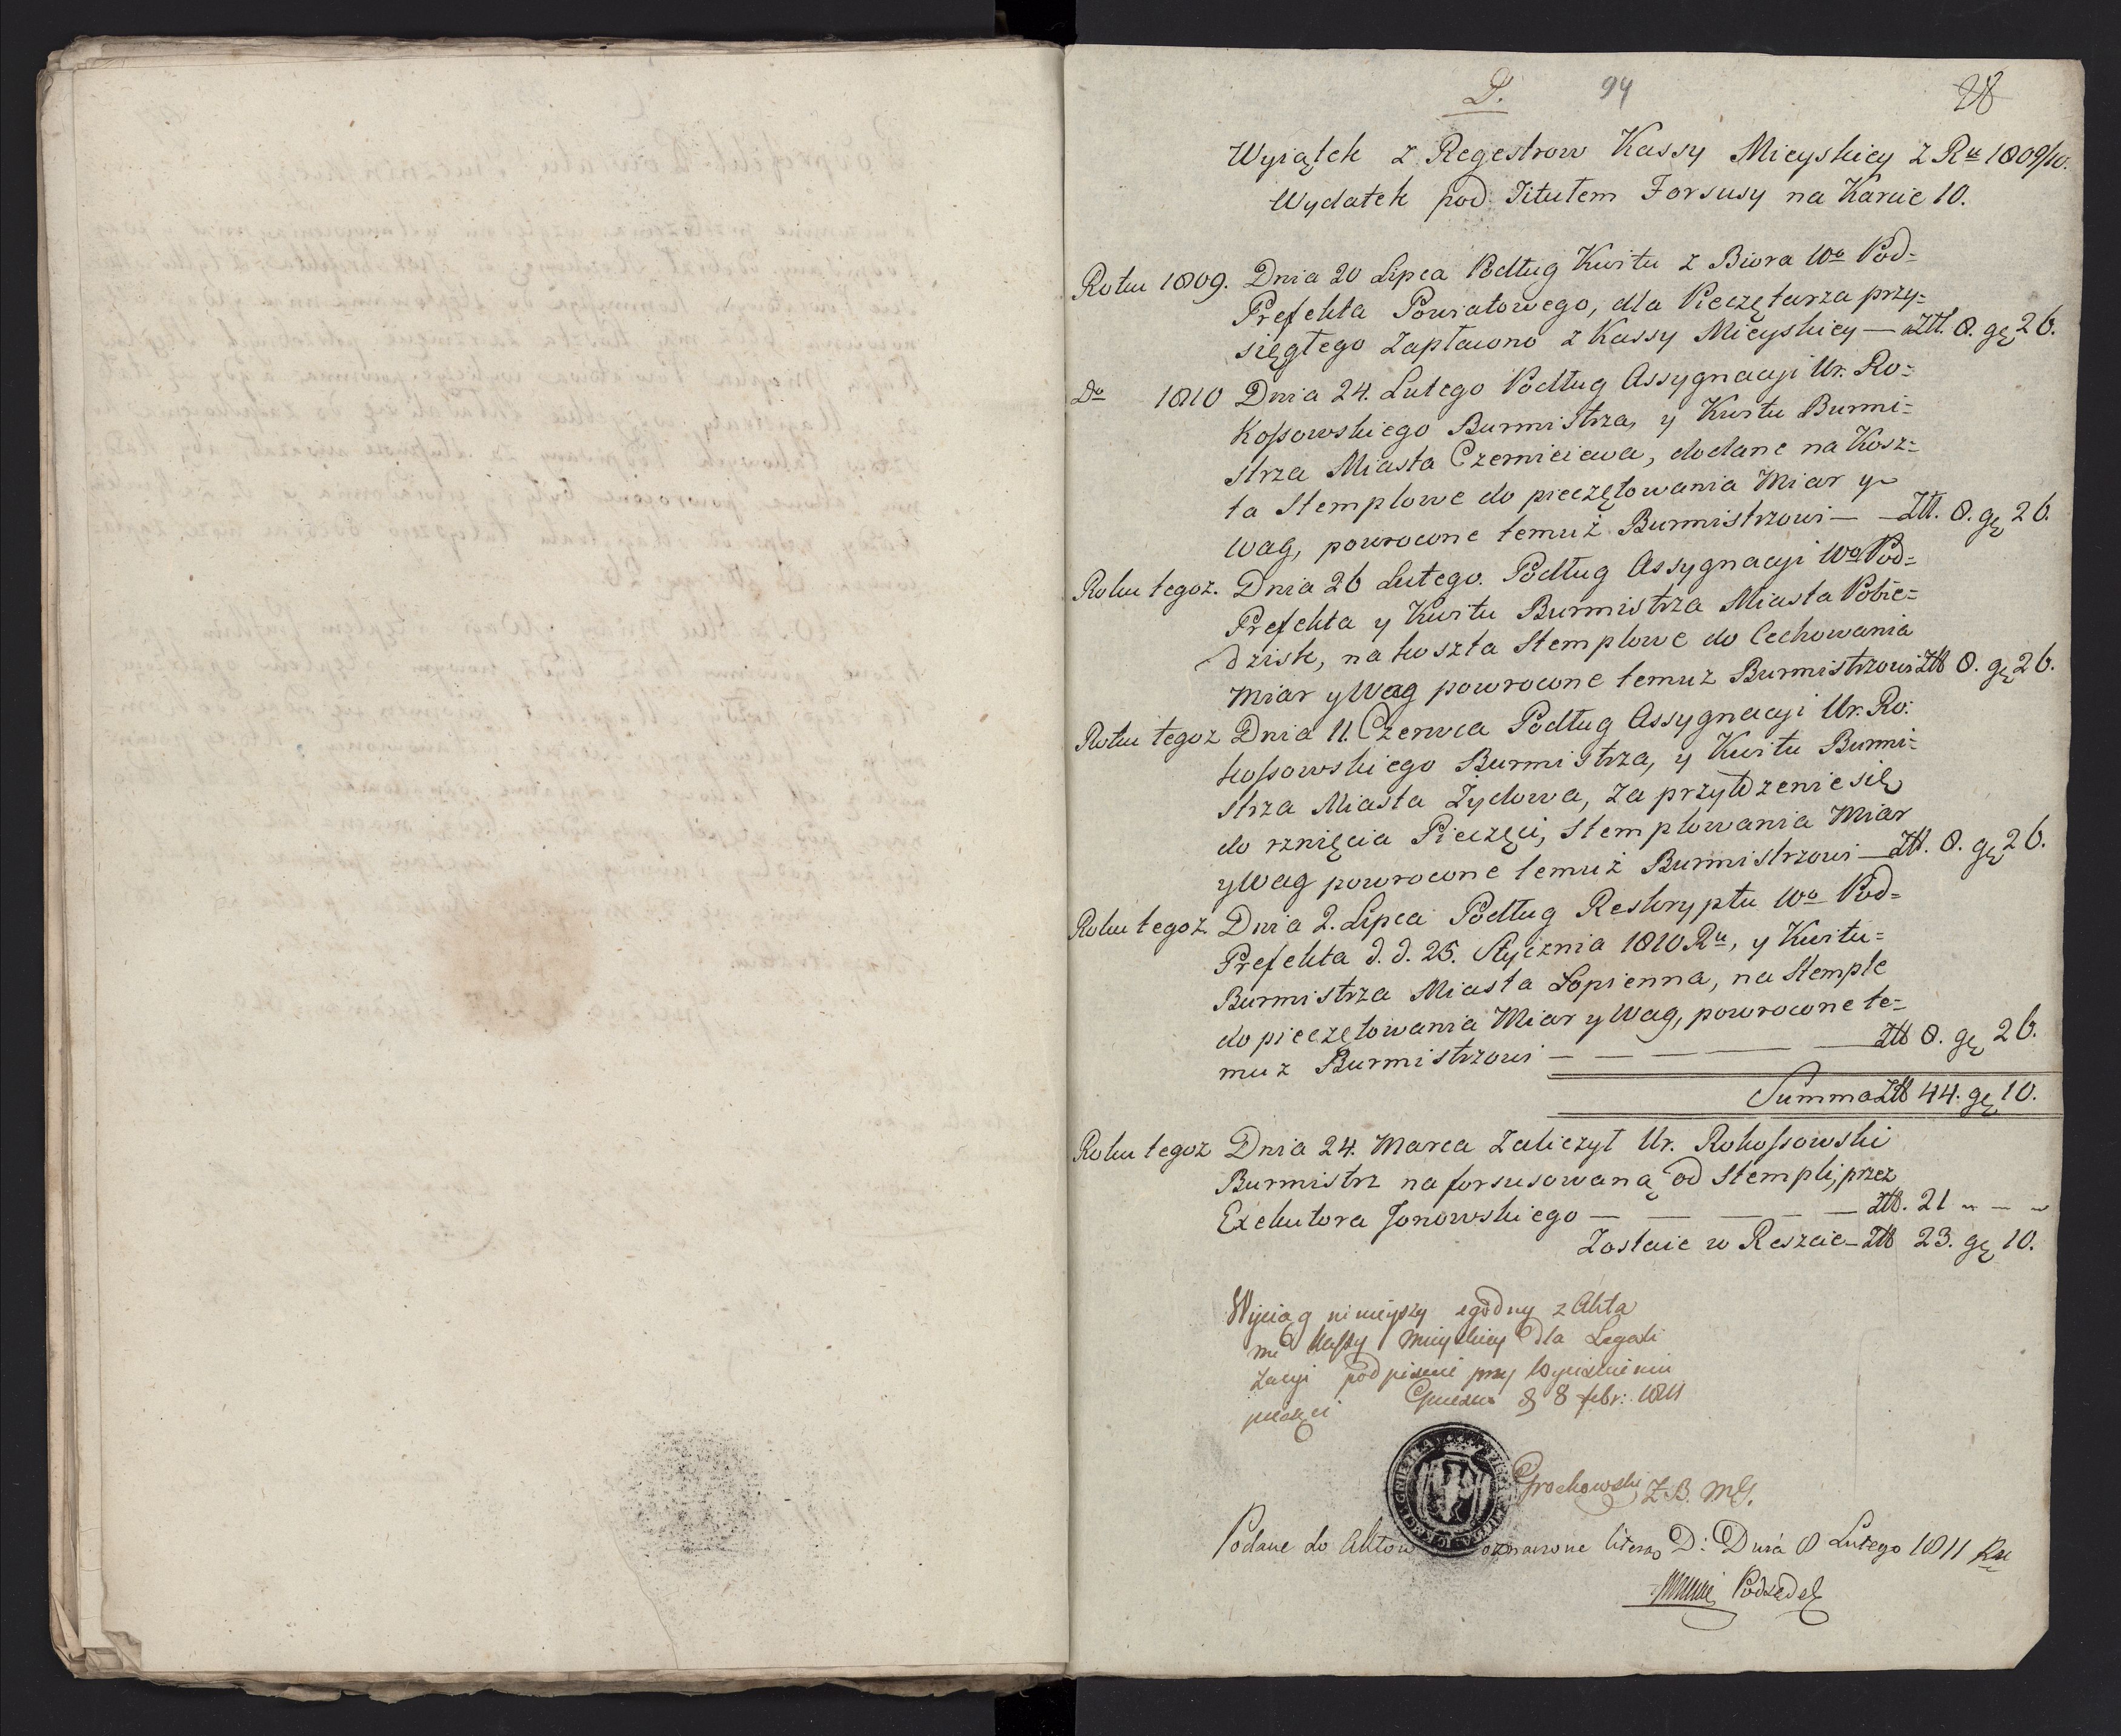 D. 94 28
Wyiątek z Regestrow Kassy Mieyskiey z Ru 1809/10.
Wydatek pod Titułem Forsusy na Karcie 10.
Roku 1809. Dnia 20 Lipca Podług Kwitu z Biora Wo Pod=
Prefekta Powiatowego, dla Pieczętarza przy=
sięgłego Zapłacono z Kassy Mieyskiey — Złł. 8. gę 26.
Do 1810 Dnia 24. Lutego Podług Assygnacyi Ur. Ro=
kossowskiego Burmistrza, y Kwitu Burmi=
strza Miasta Czerniejewa, dodane na Kosz=
ta Stemplowe do pieczętowania Miar y
Wag, powrocone temuż Burmistrzowi — Złł. 8. gę 26.
Roku tegoż. Dnia 26 Lutego. Podług Assygnacyi Wo Pod=
Prefekta y Kwitu Burmistrza Miasta Pobie=
dzisk, na koszta Stemplowe do Cechowania
Miar y Wag powrocone temuz Burmistrzowi Złł 8. gę 26.
Roku tegoz Dnia 11. Czerwca Podług Assygnacyi Ur. Ro=
kossowskiego Burmistrza, y Kwitu Burmi=
strza Miasta Żydowa, za przyłdzenie się
do rznięcia Pieczęci, Stemplowania Miar
y Wag powrocone temuż Burmistrzowi — Złł. 8. gę 26.
Roku tegoż Dnia 2. Lipca Podług Reskryptu Wo Pod=
Prefekta d. d. 25. Stycznia 1810 Ru, y Kwitu=
Burmistrza Miasta Łopienna, na Stemple
do pieczętowania Miar y Wag, powrocone te=
muz Burmistrzowi — — — — — Złł 8. gę 26.
Summa Złł 44. gę 10.
Roku tegoz Dnia 24. Marca Zaliczył Ur. Rokossowski
Burmistrz na forsusowaną od Stempli, przez
Exekutora Jonowskiego — — — — — Złł. 21 — —
Zostaie w Reszcie — Złł 23. gę 10.
Wyciąg ninieyszy zgodny z Akta
mi Kassy Mieyskiey dla Legali
zacyi podpisuie przy Wyciśnieniu
pieczęci Gniezno d 8 febr: 1811
Grochowski Z. B. MG.
Podane do Aktow oznaczone literą D: Dnia 8 Lutego 1811 Ru
Podsędek